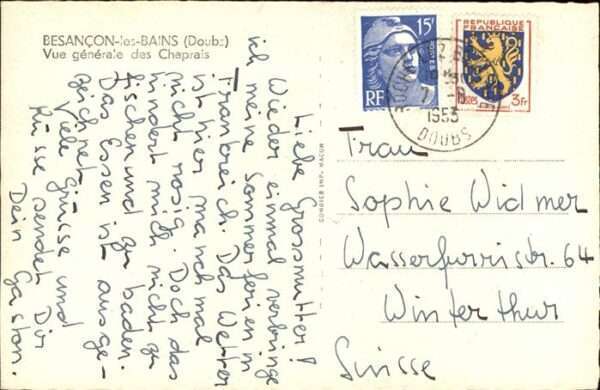 BESANÇON-les-BAINS (Doubs)
Vue générale des Chaprais
Liebe Grossmutter!
Wieder einmal verbringe
ich meine Sommerferien in
Frankreich. Das Wetter
ist hier manchmal
nicht rosig. Doch das
hindert mich nicht zu
fischen und zu baden.
Das Essen ist ausge-
zeichnet.
Viele Grüsse und
Küsse sendet Dir
Dein Gaston.
COMBIER IMP. MACON
15F
POSTES
RF
REPUBLIQUE
FRANÇAISE
Postes 3Fr
1953
DOUBS
Frau
Sophie Widmer
Wasserfurristr. 64
Winterthur
Suisse